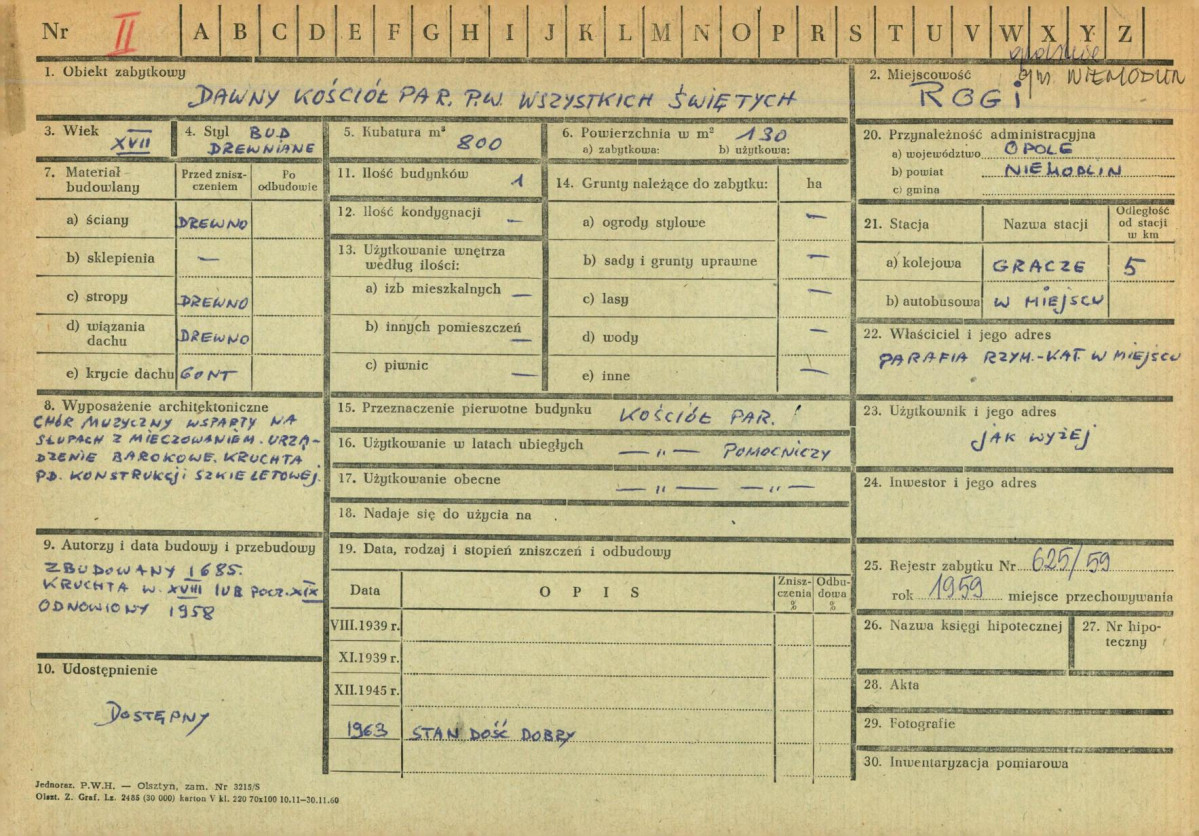 Nr II A B C D E F G H I J K L M N O P R S T U V W X Y Z
1. Obiekt zabytkowy
DAWNY KOŚCIÓŁ PAR. P.W. WSZYSTKICH ŚWIĘTYCH
2. Miejscowość
gm. NIEMODLIN
ROGI
3. Wiek
XVII
4. Styl BUD
DREWNIANE
5. Kubatura m³
800
6. Powierzchnia w m² 130
a) zabytkowa: b) użytkowa:
7. Materiał budowlany
Przed zniszczeniem
Po odbudowie
a) ściany DREWNO
b) sklepienia —
c) stropy DREWNO
d) wiązania dachu DREWNO
e) krycie dachu GONT
8. Wyposażenie architektoniczne
CHÓR MUZYCZNY WSPARTY NA
SŁUPACH Z MIECZOWANIEM. URZĄ-
DZENIE BAROKOWE. KRUCHTA
PD. KONSTRUKCJI SZKIELETOWEJ.
9. Autorzy i data budowy i przebudowy
ZBUDOWANY 1685.
KRUCHTA W. XVIII LUB POCZ. XIX
ODNOWIONY 1958
10. Udostępnienie
DOSTĘPNY
11. Ilość budynków 1
12. Ilość kondygnacji —
13. Użytkowanie wnętrza
według ilości:
a) izb mieszkalnych —
b) innych pomieszczeń —
c) piwnic —
14. Grunty należące do zabytku: ha
a) ogrody stylowe —
b) sady i grunty uprawne —
c) lasy —
d) wody —
e) inne —
15. Przeznaczenie pierwotne budynku KOŚCIÓŁ PAR.
16. Użytkowanie w latach ubiegłych — „ — POMOCNICZY
17. Użytkowanie obecne — „ — — „ —
18. Nadaje się do użycia na
19. Data, rodzaj i stopień zniszczeń i odbudowy
Data
OPIS
Zniszczenia %
Odbudowa %
VIII.1939 r.
XI.1939 r.
XII.1945 r.
1963 STAN DOŚĆ DOBRY
20. Przynależność administracyjna
a) województwo OPOLE
b) powiat NIEMODLIN
c) gmina
21. Stacja
Nazwa stacji
Odległość od stacji w km
a) kolejowa GRACZE 5
b) autobusowa W MIEJSCU
22. Właściciel i jego adres
PARAFIA RZYM.-KAT. W MIEJSCU
23. Użytkownik i jego adres
JAK WYŻEJ
24. Inwestor i jego adres
25. Rejestr zabytku Nr 625/59
rok 1959 miejsce przechowywania
26. Nazwa księgi hipotecznej
27. Nr hipo-
teczny
28. Akta
29. Fotografie
30. Inwentaryzacja pomiarowa
Jednoraz. P.W.H. — Olsztyn, zam. Nr 3215/S
Olszt. Z. Graf. Lz. 2485 (30 000) karton V kl. 220 70x100 10.11—30.11.60